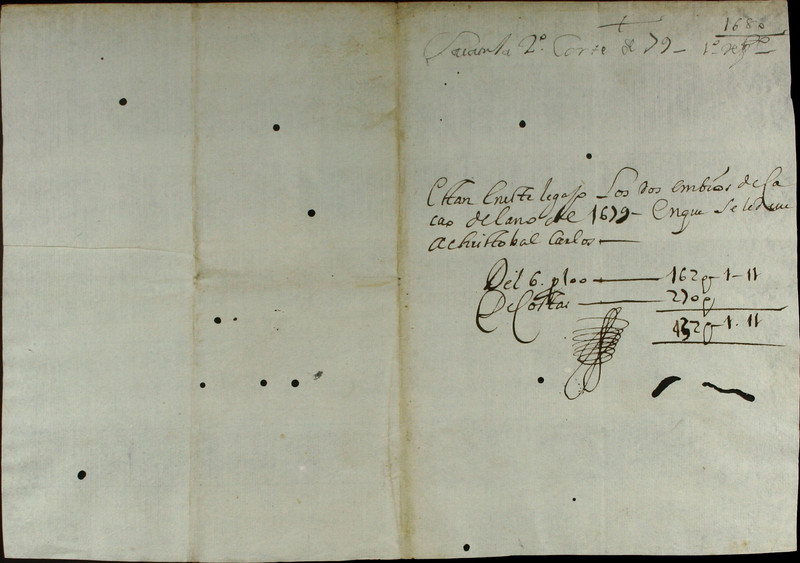 1680
2º. Corte de 79 -
Estan en este legajo Los dos embios de Ca
cao del año de 1679 - en que se le deve
a christobal Carlos
Del 6. p100 162 p 1-11
De Costas 270 p
432 p 1-11